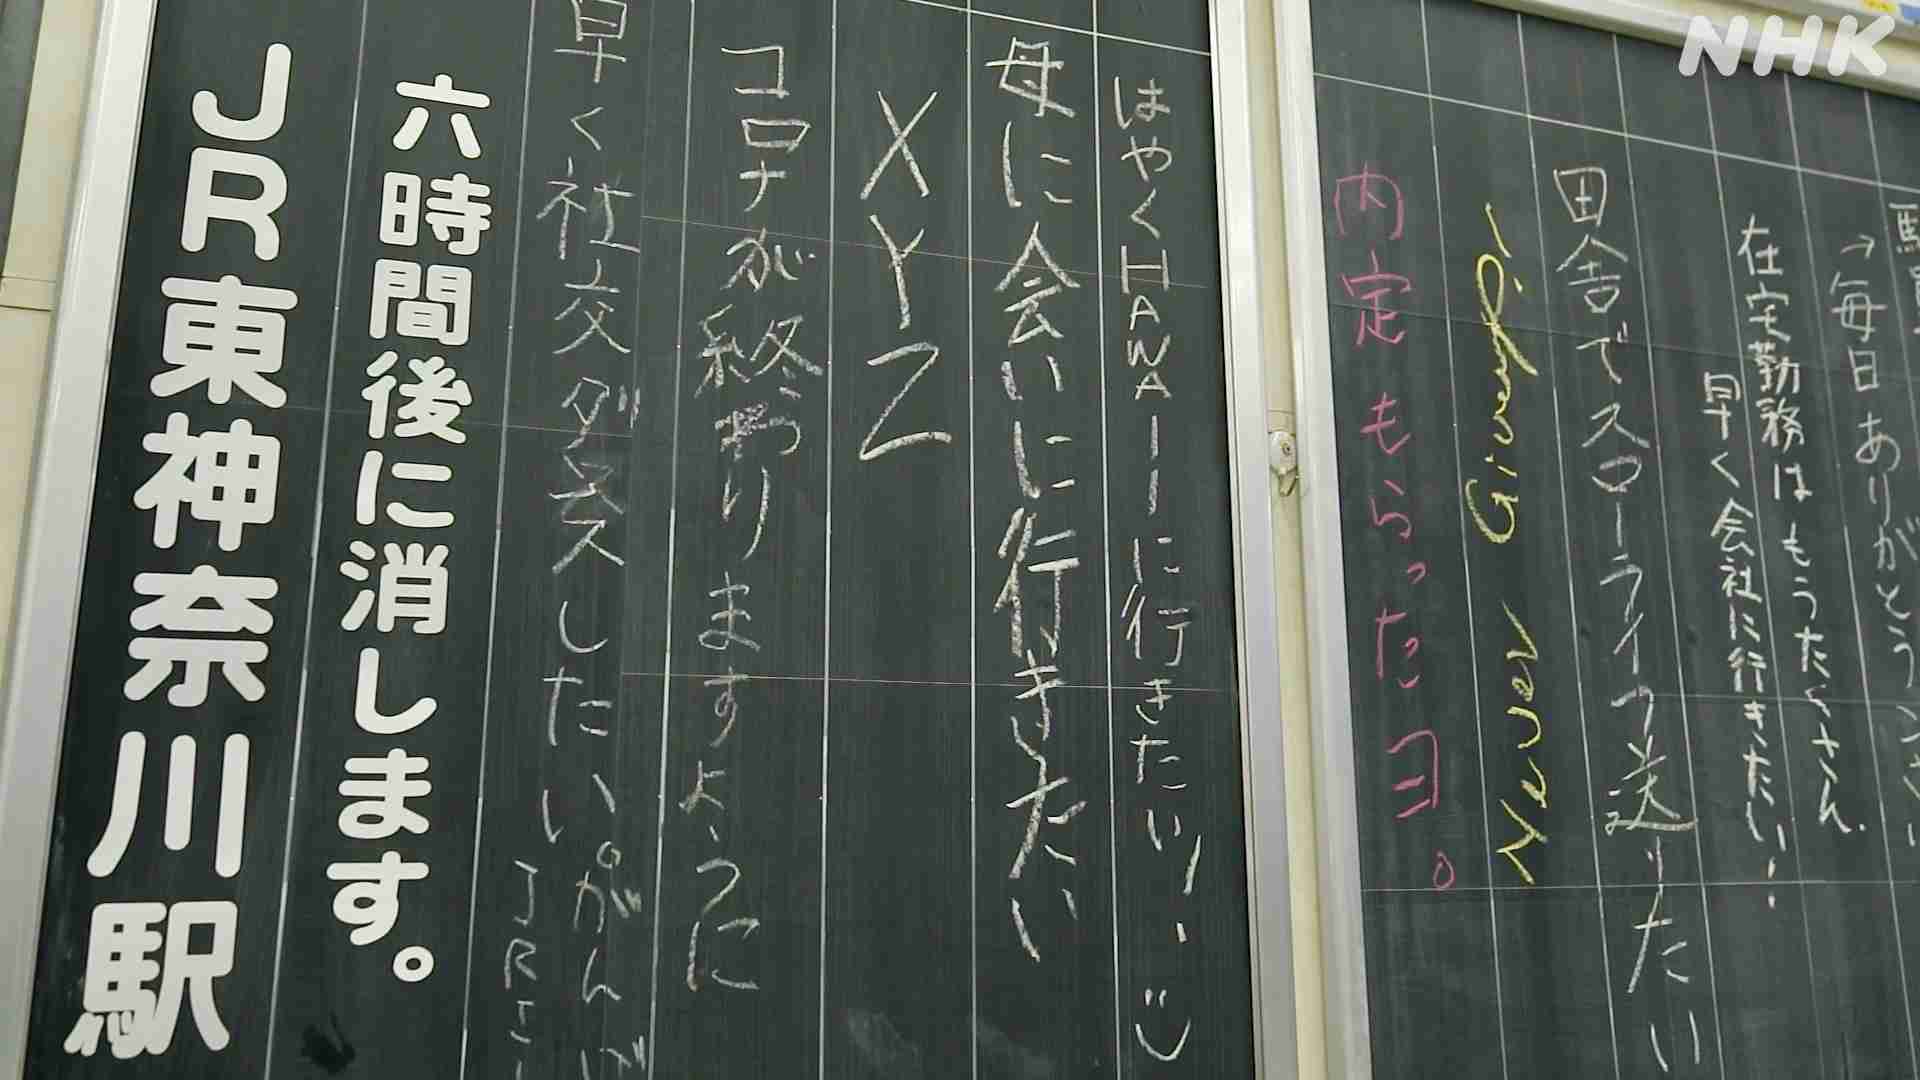 NHK
駅員
→毎日ありがとうございます
在宅勤務はもうたくさん.
早く会社に行きたい!!
田舎でスローライフ送りたい
Never Give up!
内定もらったヨ。
はやくHAWAIIに行きたい!!
母に会いに行きたい
XYZ
コロナが終わりますように
早く社交ダンスしたい。がんば
JR
六時間後に消します。
JR東神奈川駅